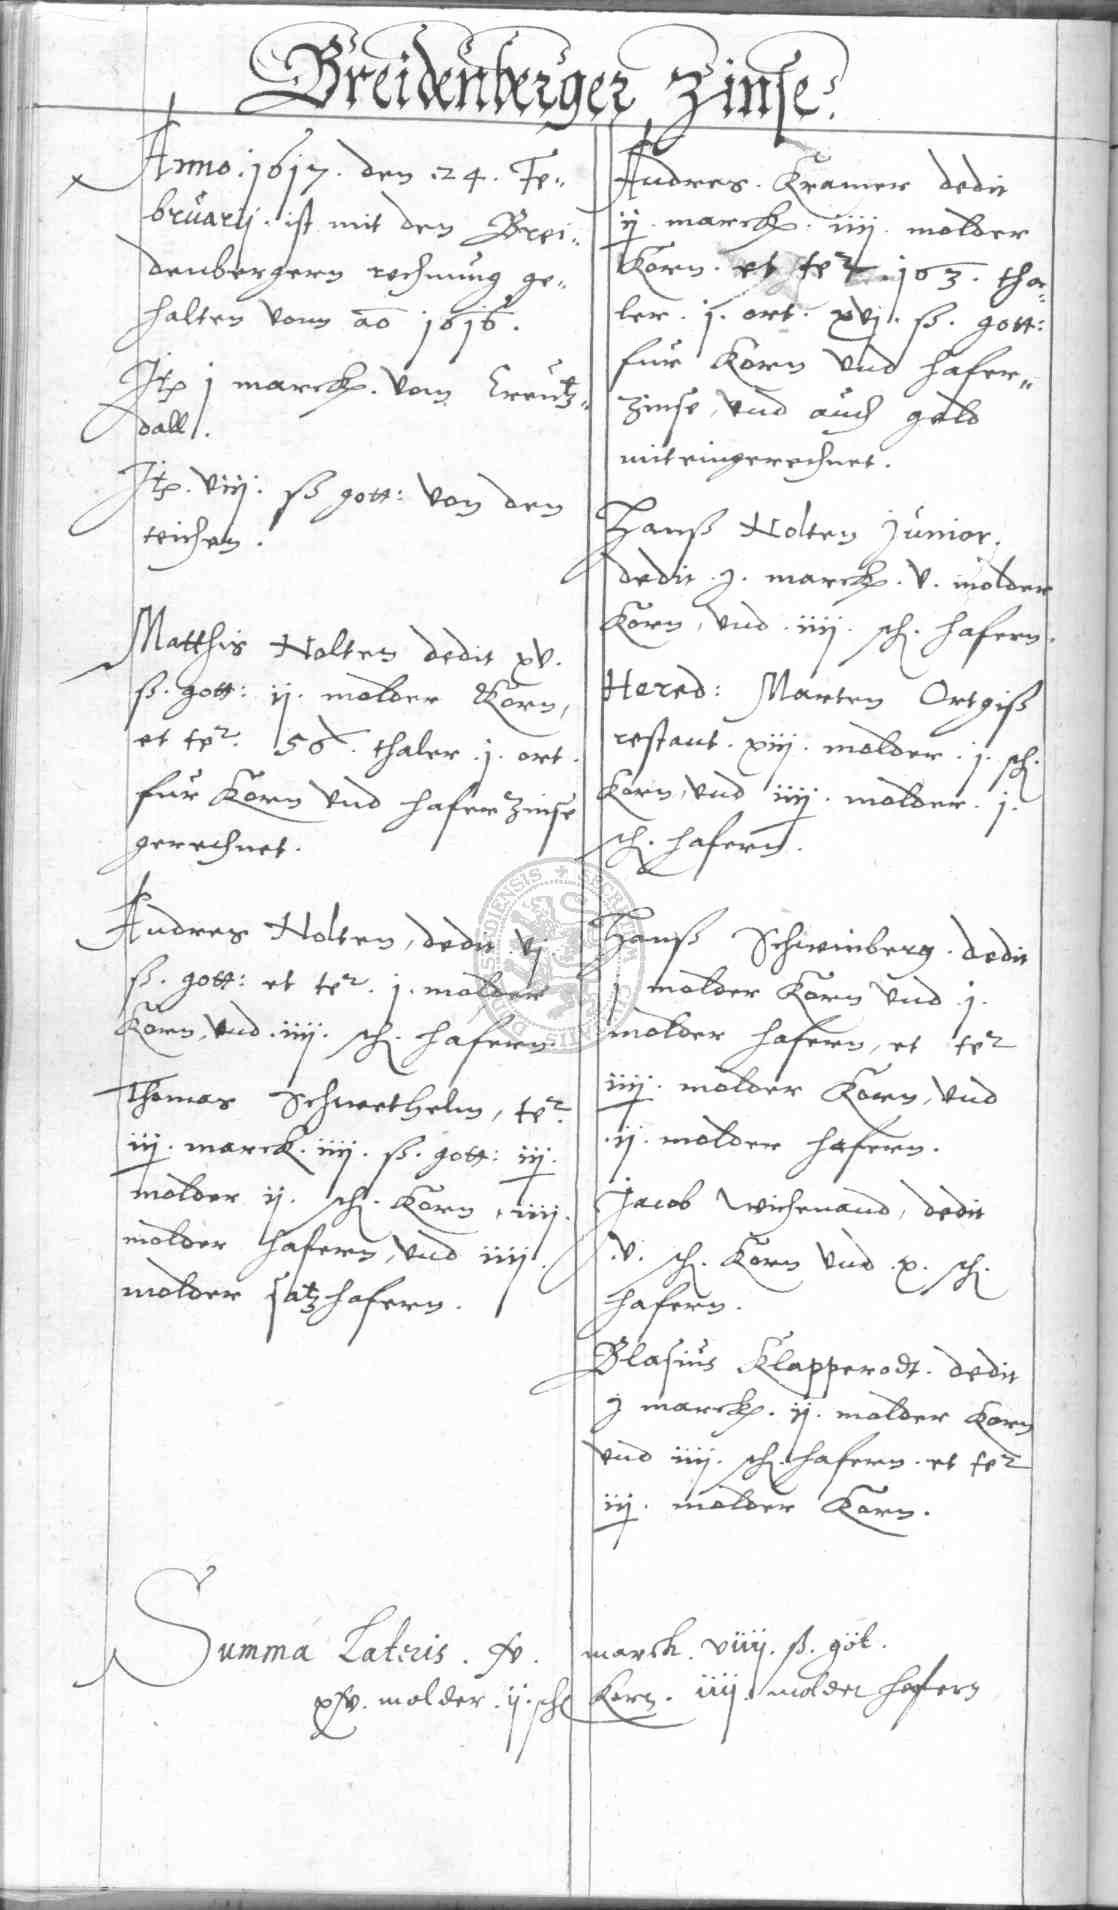 Breidenberger Zinse.
Anno. 1617. den .24. Fe„
bruarij. ist mit den Brei„
denbergern rechnung ge„
halten vom ao 1616.
Jtp j marckp. vom Creutz„
dall.
Jtp. viij. ß gott: von den
teichen.
Matthis Nolten dedit xv.
ß. gott: ij. molder Korn,
et te2. 56. thaler .j. ort.
für Korn vnd hafer Zinse
gerechnet.
Andres Nolten, dedit vj.
ß. gott: et te2. j. molder
Korn, vnd .iiij. sch. hafern.
Thomas Schwethelm, te2
iij. marck. iiij. ß. gott: iij.
molder ij. sch. Korn, iiij.
molder hafern, vnd iiij.
molder satzhafern.
Andres. Kramer dedit
ij. marckp. iiij. molder
Korn. et te2 163. tha„
ler. j. ort. xvj. ß. gott:
für Korn vnd hafer„
zinse, vnd auch geld
mit eingerechnet.
Hanß Nolten junior,
dedit .j. marckp. v. molder
Korn, vnd .iiij. sch. hafern.
Hered: Marten Ortgiß
restant. xiij. molder .j. sch.
Korn, vnd iiij. molder. j.
sch. hafern.
Hanß Schweinberg. dedit
j molder Korn vnd .j.
molder hafern, et te2
iiij. molder Korn, vnd
.ij. molder hafern.
Jacob Wichenand, dedit
.v. sch. Korn vnd .x. sch.
hafern.
Blasius Klapperodt. dedit
j marckp. ij. molder Korn
vnd iiij. sch. hafern. et te2
iij. molder Korn.
Summa Lateris. marck. viiij. ß. göt.
molder .ij. sch Korn. iiij. molder hafern